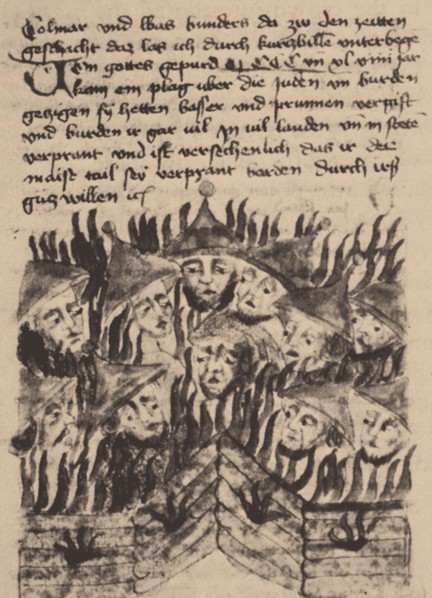 Colmar und was bunders da zw den zeitten
geschicht daz las ich durch kurtzbille unterbege
In gottes gepurd M CCC un xl viiii jar
kam ein plag uber die Juden un burden
gezigen sy hetten basser und prunnen vergift
und burden ir gar uil In uil landen un in stete
verprant und ist versechenlich das ir der
maist tail sey verprant borden durch irs
gutz willen